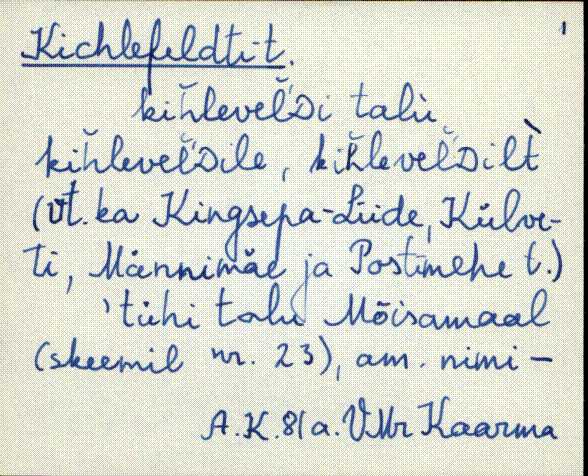 1
Kichlefeldti t.
kiȟleveľ̆Di talu
kiȟleveľ̆Dile, kiȟleveľ̆Dilt̀
(vt. ka Kingsepa-Liide, Külve-
ti, Männimäe ja Postimehe t.)
'tühi talu Mõisamaal
(skeemil nr. 23), am. nimi –
A.K. 81 a. VMr Kaarma